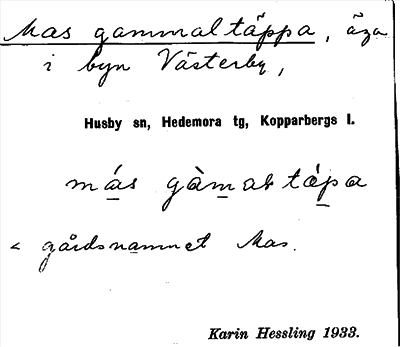 Mas gammaltäppa, äga
i byn Västerby,
Husby sn, Hedemora tg, Kopparbergs l.
más gàmaltápa
< gårdsnamnet Mas.
Karin Hessling 1933.